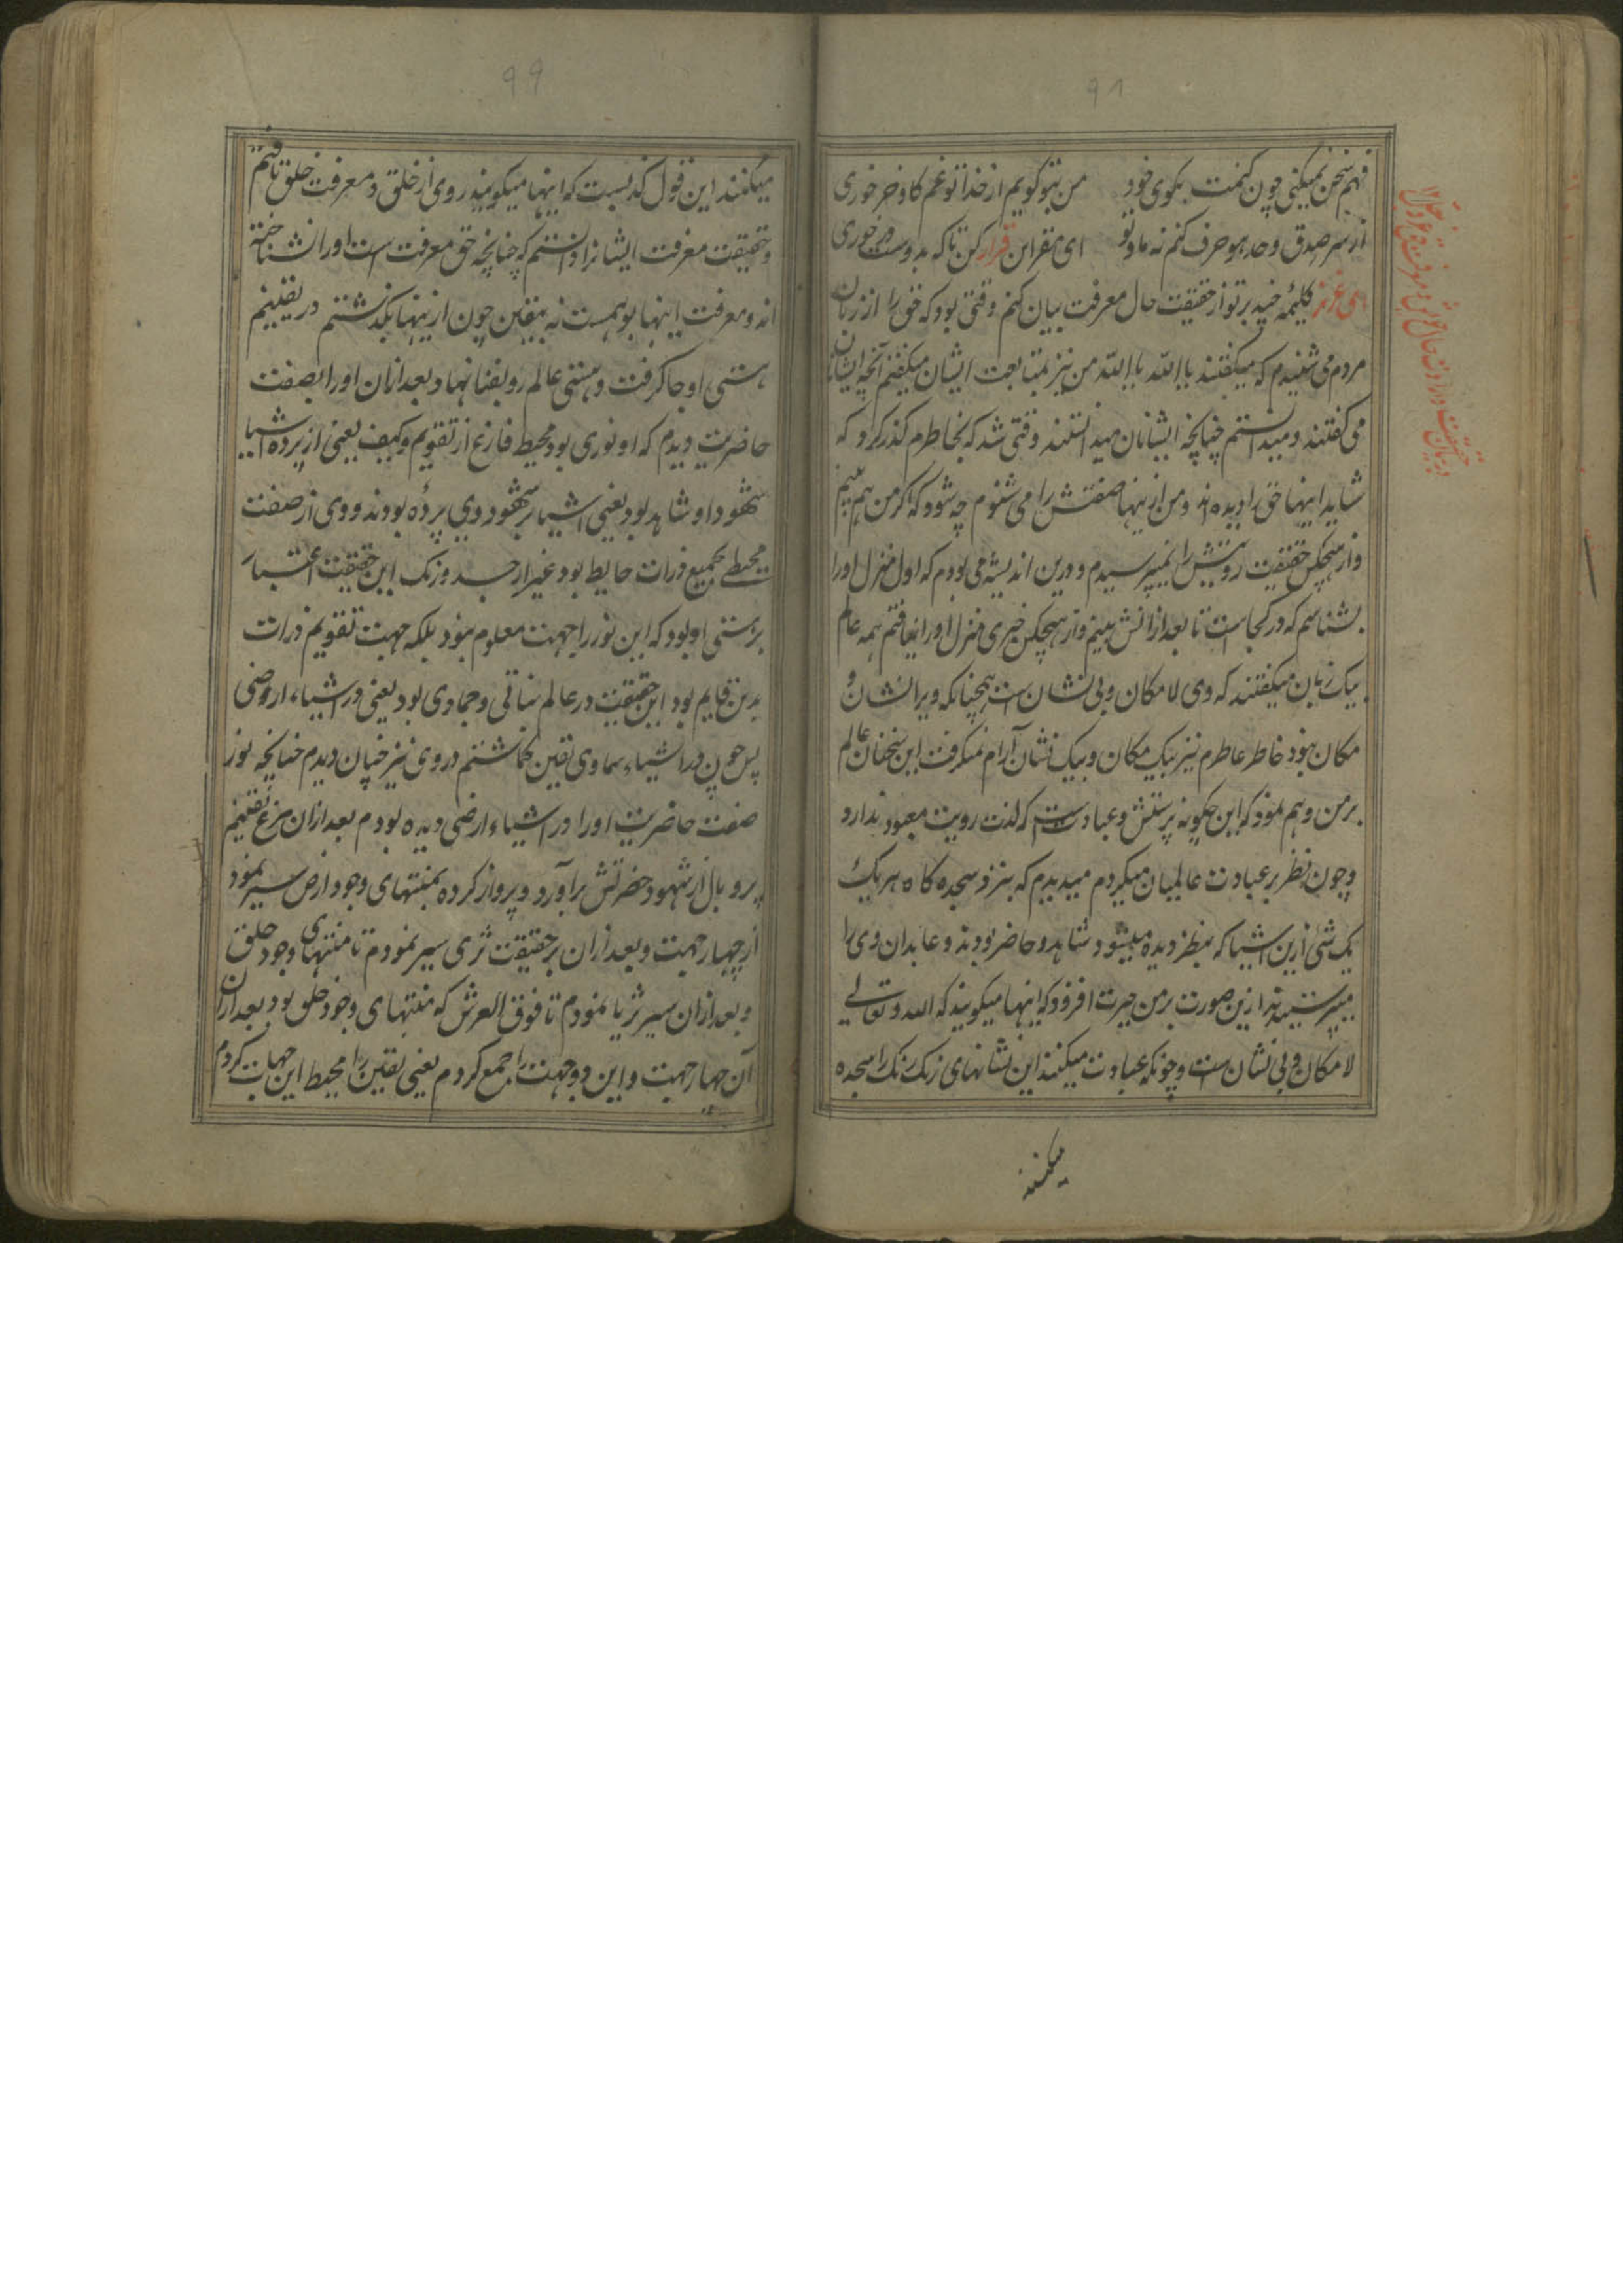 ۹۸
فهم سخن نمیکنی چون کنمت بکوی خود من بتو کویم از خدا تو غم کاو و خر خوری
از سر صدق وحد هو حرف کنم نه ما و تو ای مقر این قرار کن تا که بدوست در خوری
ای عزیز کلیمهٔ چند بر تو از حقیقت حال معرفت بیان کنم وقتی بود که حق را از زبان
مردم می شنیدم که میکفتند یا الله یا الله من نیز بمتابعت ایشان میکفتم آنچه ایشان
می کفتند و میدانستم چنانچه ایشانان میدانستند وقتی شد که بخاطرم کذر کرد که
شاید اینها حق را دیده اند و من از اینها صفتش را می شنوم چه شود که اکر من هم بینم
و از هیچکس حقیقت رویتش را نمیپرسیدم و درین اندیشه می بودم که اول منزل اورا
بشناسم که در کجاست تا بعد ازانش ببینم و از هیچکس خبری منزل اورا نیافتم همه عالم
بیک زبان میکفتند که وی لامکان و بی نشان است همچنانکه ویرا نشان و
مکان نبود خاطر عاطرم نیز بیک مکان و بیک نشان آرام نمیکرفت این سخنان عالم
بر من وهم نمود که این چکونه پرستش و عبادتست که لذت رویت معبود ندارد
و چون نظر بر عبادت عالمیان میکردم میدیدم که بنزد سجده کاه هر یک
یک شی ازین اشیا که بنظر دیده میشود شاهد و حاضر بودند و عابدان وی را
میپرستیدند ازین صورت بر من حیرت افزود که اینها میکویند که الله و تعالی
لامکان و بی نشان ست و چونکه عبادت میکنند این نشانهای رنک رنک را سجده
میکنند
۹۹
میکنند این قول کذبست که اینها میکویند روی از خلق و معرفت خلق تافتم
و حقیقت معرفت ایشانرا دانستم که چنانچه حق معرفت است اورا نشناخته
اند و معرفت اینها بوهمست نه بیقین چون ازینها بکذشتم در یقینم
هستی او جا کرفت و هستی عالم رو بفنا نهاد بعد ازان اورا بصفت
حاضریت دیدم که او نوری بود محیط فارغ از تقویم و کیف یعنی از پرده اشیا
شهود او شاهد بود یعنی اشیا بر شهود وی پرده بودند و وی از صفت
محیطی بجمیع ذرات حایط بود غیر از جسد و رنک این حقیقت اعتبار
بر هستی او بود که این نور را جهت معلوم نبود بلکه جهت تقویم ذرات
بدین قایم بود این حقیقت در عالم نباتی و جمادی بود یعنی در اشیاء ارضی
پس چون در اشیاء سماوی یقین کماشتم در وی نیز چنان دیدم چنانچه نور
صفت حاضریت اورا در اشیاء ارضی دیده بودم بعد ازان مرغ یقینم
پر و بال از شهود حضرتش برآورد و پرواز کرده بمنتهای وجود ارض سیر نمود
از چهار جهت و بعد ازان بر حقیقت ثری سیر نمودم تا منتهای وجود خلق
و بعد ازان سیر ثریا نمودم تا فوق العرش که منتهای وجود خلق بود بعد ازان
آن چهار جهت و این دو جهت را جمع کردم یعنی یقین را محیط این جهات کردم